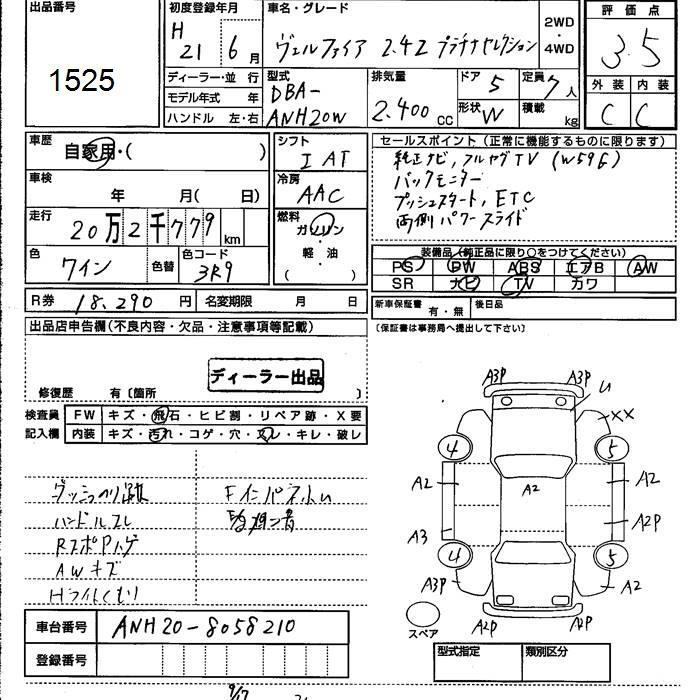 出品番号
1525
初度登録年月
H 21 6月
車名・グレード
ヴェルファイア 2.4Z プラチナセレクション
2WD
4WD
評価点
3.5
ディーラー・並行
モデル年式 年
ハンドル 左・右
型式
DBA-
ANH20W
排気量
2.400 cc
ドア 5
形状 W
定員 7人
積載 kg
外装 内装
C C
車歴
自家用・( )
車検
年 月( 日)
走行
20万2千779 km
色
ワイン
色替
色コード
3R9
シフト
IAT
冷房
AAC
燃料
ガソリン
・
軽・油
( )
セールスポイント(正常に機能するものに限ります)
純正ナビ,フルセグTV (W59G)
バックモニター
プッシュスタート,ETC
両側パワースライド
装備品(純正品に限り○をつけてください)
PS PW ABS エアB AW
SR ナビ TV カワ
R券 18,290 円 名変期限 月 日
新車保証書 有・無 後日品
(保証書は事務局へ提出して下さい)
出品店申告欄(不良内容・欠品・注意事項等記載)
ディーラー出品
修復歴 有〔箇所 〕
検査員
記入欄
FW キズ・飛石・ヒビ割・リペア跡・X要
内装 キズ・汚れ・コゲ・穴・スレ・キレ・破レ
ハンドルスレ
AWキズ
Hライトくもり
A3P A3P
U
XX
4 5
A2 A2 A2
A3 A2P
4 5
A3P A2
A2P A2P
スペア
車台番号 ANH20-8058210
登録番号
型式指定 類別区分